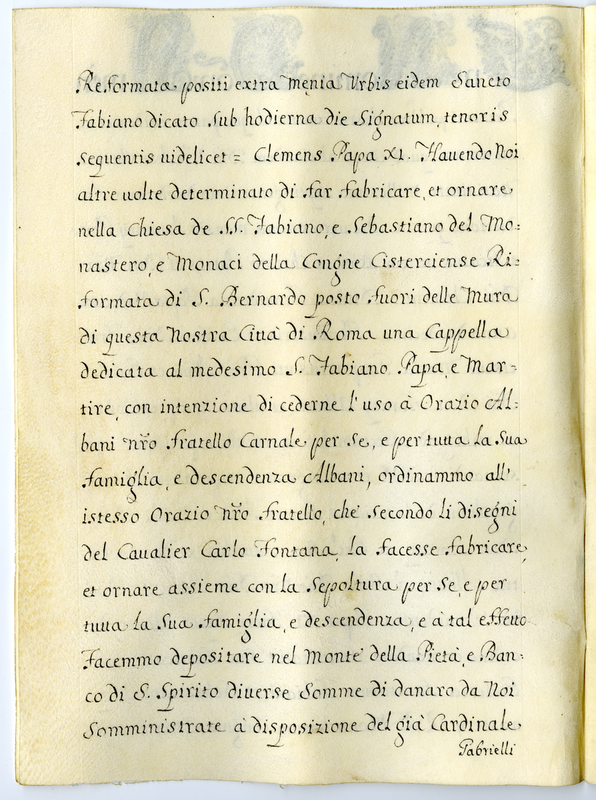 Reformatæ positi extra męnia Vrbis eidem Sancto
Fabiano dicato sub hodierna die Signatum, tenoris
sequentis uidelicet = Clemens Papa XI. Hauendo Noi
altre uolte determinato di far fabricare, et ornare
nella Chiesa de SS. Fabiano, e Sebastiano del Mo:
nastero, e Monaci della Congñe Cisterciense Ri:
formata di S. Bernardo posto fuori delle Mura
di questa Nostra Città di Roma una Cappella
dedicata al medesimo S. Fabiano Papa, e Mar:
tire, con intenzione di cederne l'uso à Orazio Al:
bani ñro fratello Carnale per se, e per tutta la Sua
famiglia, e descendenza Albani, ordinammo all'
istesso Orazio ñro fratello, che secondo li disegni
del Caualier Carlo Fontana, la facesse fabricare,
et ornare assieme con la Sepoltura per se, e per
tutta la Sua famiglia, e descendenza, e à tal effetto
facemmo depositare nel Monte della Pietà, e Ban:
co di S. Spirito diuerse Somme di danaro da Noi
Somministrate à disposizione del già Cardinale
Gabrielli